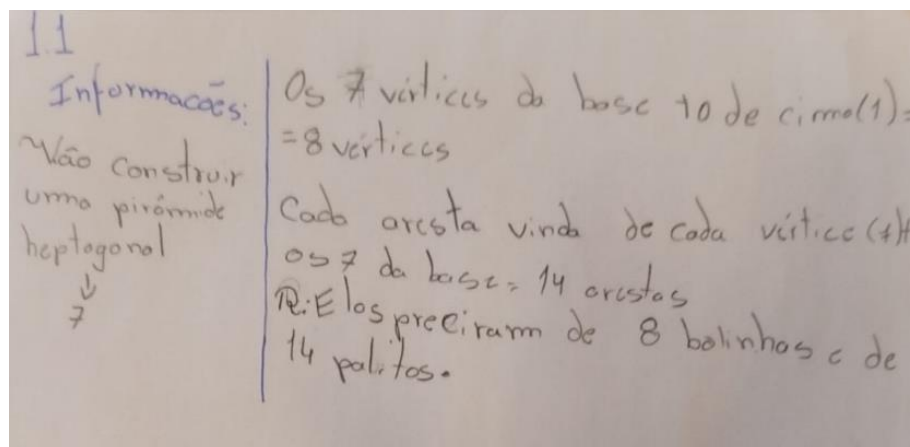 1.1
Informacões:
Vão construir
uma pirâmide
heptagonal
⇓
7
Os 7 vértices da base + o de cima(1)=
=8 vértices
Cada aresta vinda de cada vértice (7)+
os 7 da base = 14 arestas
R: Elas preciram de 8 bolinhas e de
14 palitos.